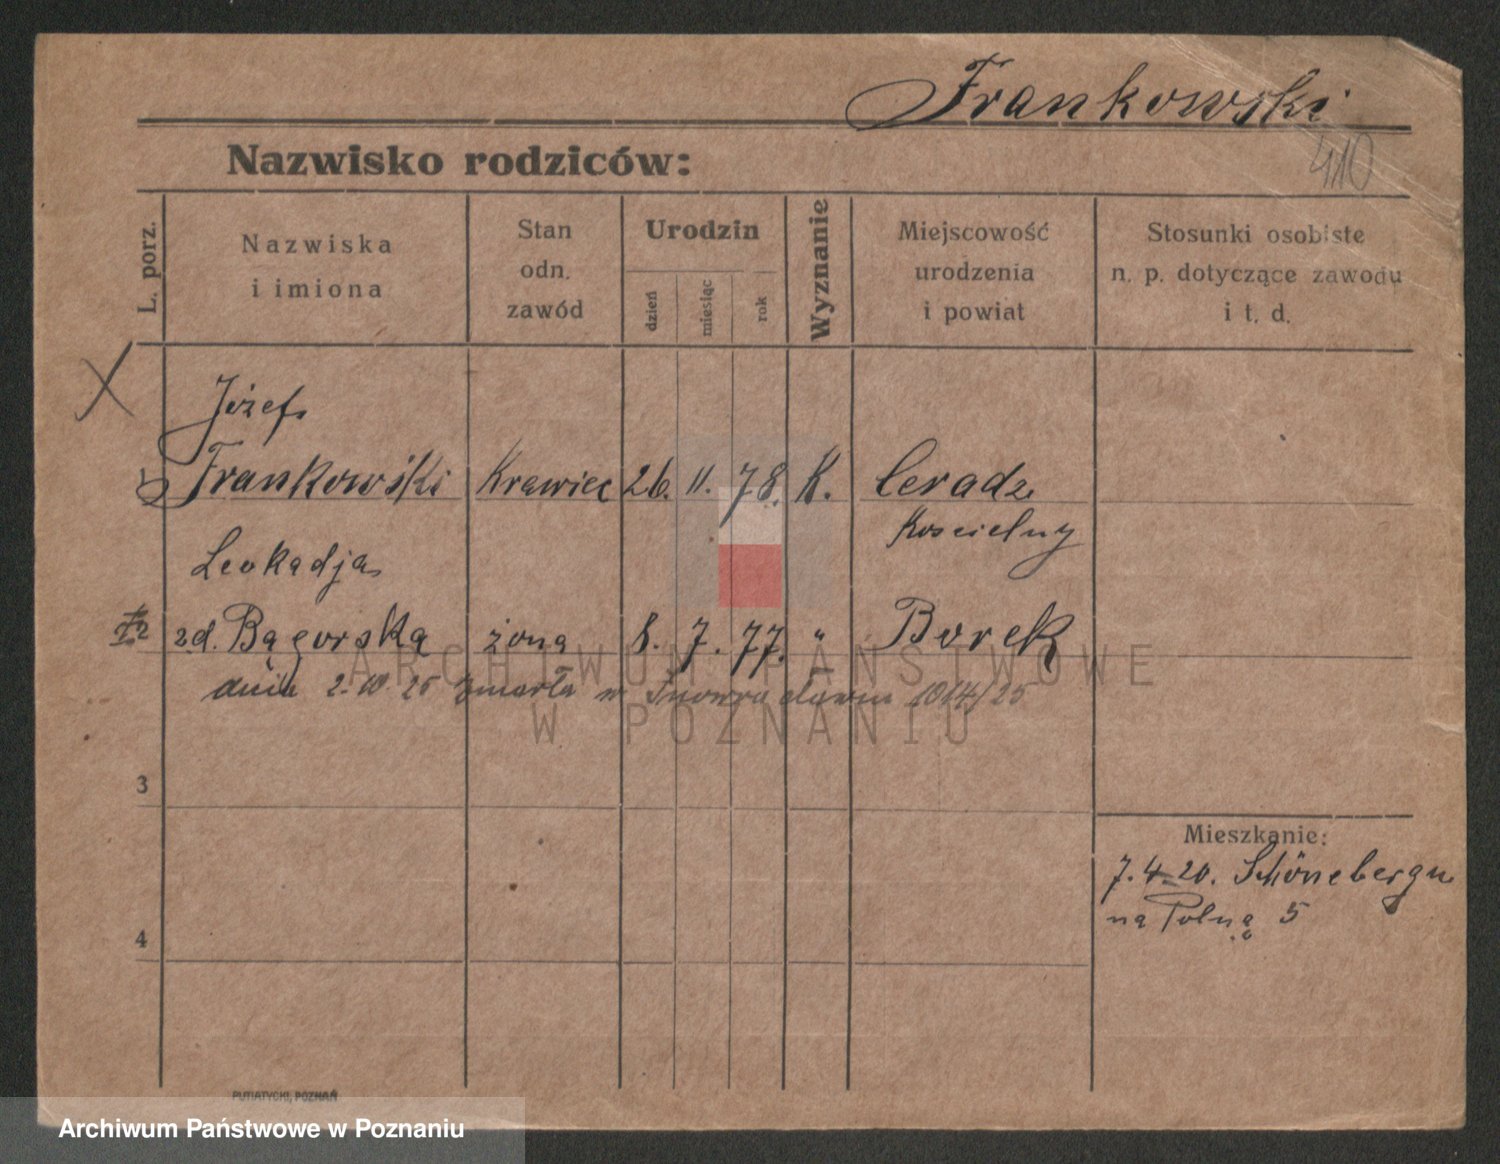 Frankowski
410
Nazwisko rodziców:
L. porz.
Nazwiska
i imiona
Stan
odn.
zawód
Urodzin
dzień
miesiąc
rok
Wyznanie
Miejscowość
urodzenia
i powiat
Stosunki osobiste
n. p. dotyczące zawodu
i t. d.
Józef
Frankowski Krawiec 26. 11. 78. K. Ceradz
Koscielny
Leokadja
2 zd. Bągorska żona 8. 7. 77. " Borek
dnia 2. 10. 25 zmarła w Inowrocławiu 1014/25
3
4
Mieszkanie:
7.4.20. Schöneberg
na Polną 5
PUTIATYCKI, POZNAŃ
ARCHIWUM PAŃSTWOWE
W POZNANIU
Archiwum Państwowe w Poznaniu